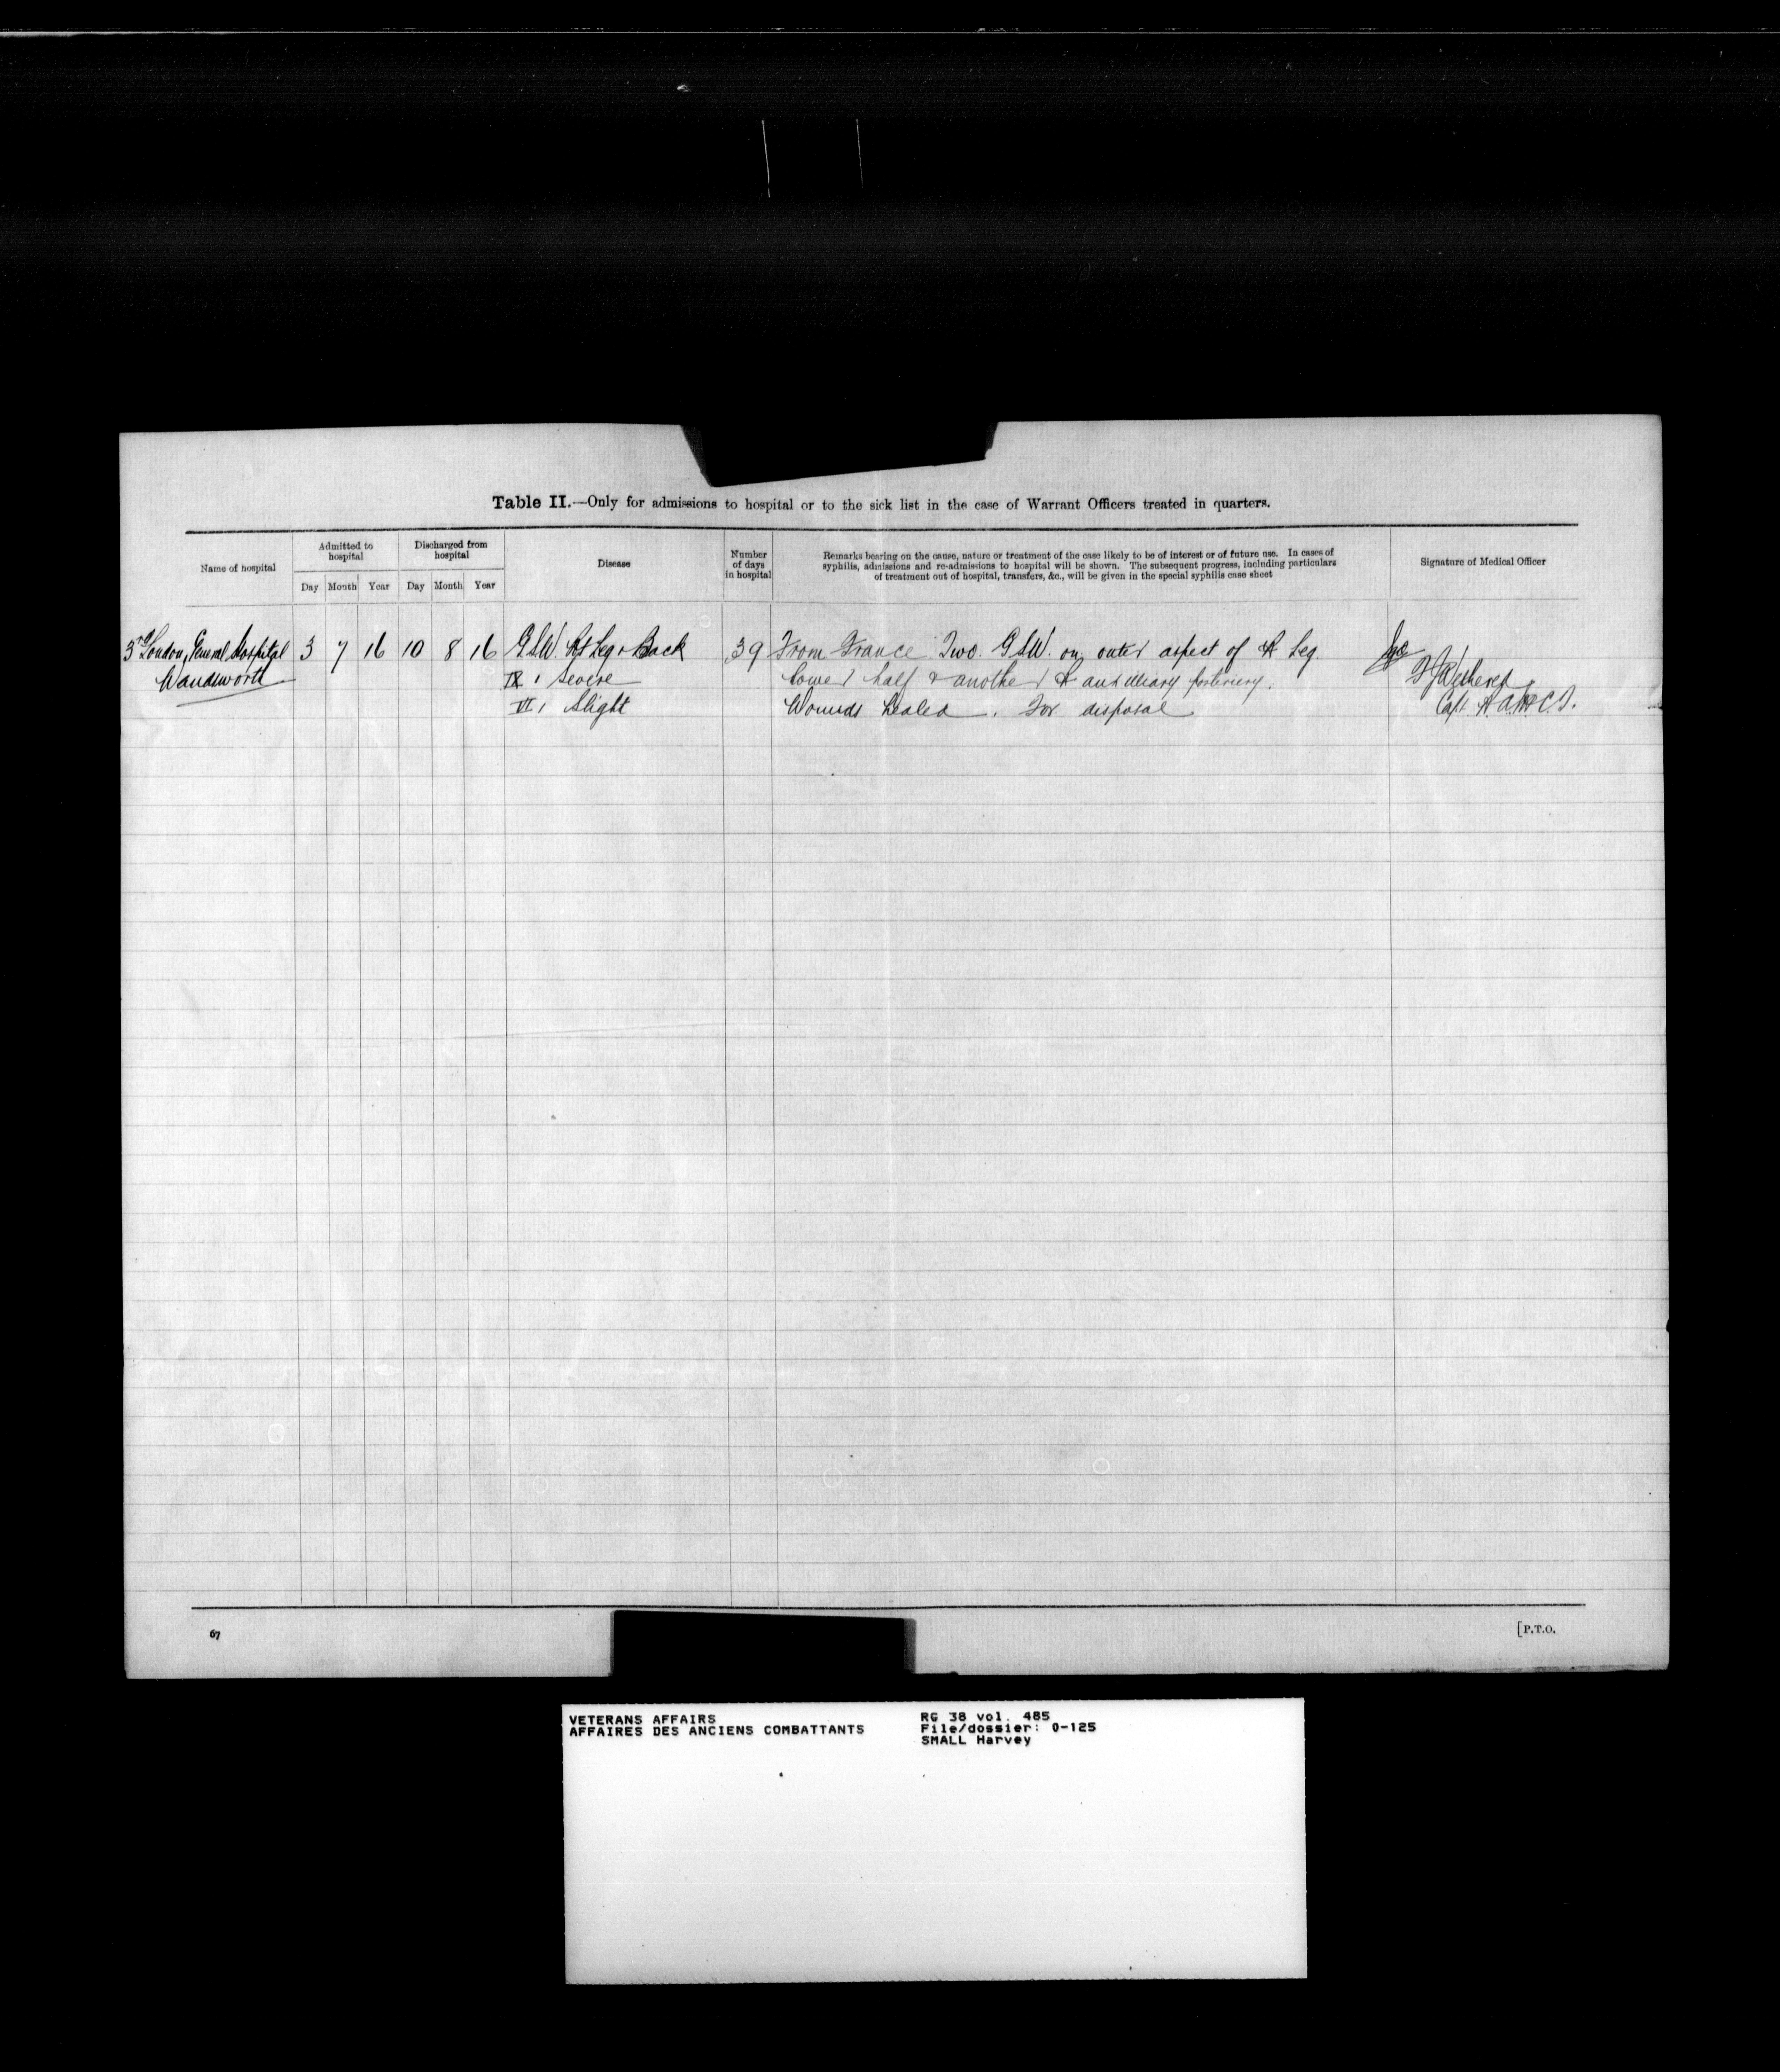 Table II.—Only for admissions to hospital or to the sick list in the case of Warrant Officers treated in quarters.
Name of hospital
Admitted to hospital
Discharged from hospital
Disease
Number of days in hospital
Remarks bearing on the cause, nature or treatment of the case likely to be of interest or of future use. In cases of
syphilis, admissions and re-admissions to hospital will be shown. The subsequent progress, including particulars
of treatment out of hospital, transfers, &c., will be given in the special syphilis case sheet
Signature of Medical Officer
Day Month Year Day Month Year
3rd London General Hospital 3 7 16 10 8 16 G.S.W. Rt Leg & Back 39 From France Two G.S.W. on outer aspect of R Leg.
Wandsworth IX 1 Severe lower half & another R posteriory.
VI 1 Slight Wounds healed. For disposal Capt R.A.M.C.T.
67
[P.T.O.
VETERANS AFFAIRS
AFFAIRES DES ANCIENS COMBATTANTS
RG 38 vol. 485
File/dossier: 0-125
SMALL Harvey